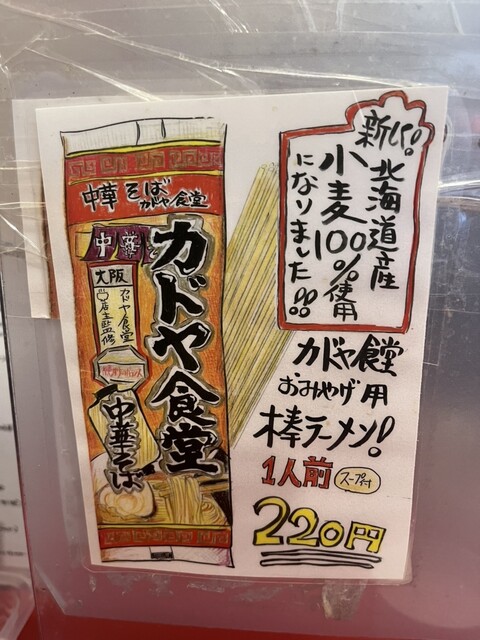 新しい!
北海道産
小麦100%使用
になりました!!
カドヤ食堂
おみやげ用
棒ラーメン!
1人前
スープ付
220円
中華そば
カドヤ食堂
中華そ
カドヤ食堂
大阪
カドヤ食堂
店主監修
中華そば